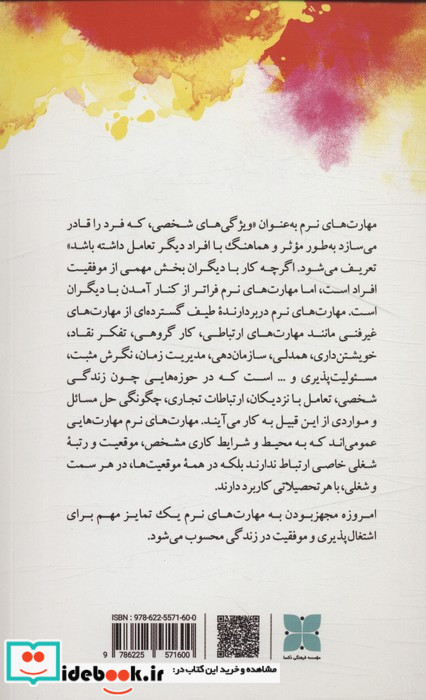 مهارت‌های نرم به‌عنوان «ویژگی‌های شخصی، که فرد را قادر
می‌سازد به‌طور مؤثر و هماهنگ با افراد دیگر تعامل داشته باشد»
تعریف می‌شود. اگرچه کار با دیگران بخش مهمی از موفقیت
افراد است، اما مهارت‌های نرم فراتر از کنار آمدن با دیگران
است. مهارت‌های نرم دربردارندهٔ طیف گسترده‌ای از مهارت‌های
غیرفنی مانند مهارت‌های ارتباطی، کار گروهی، تفکر نقاد،
خویشتن‌داری، همدلی، سازمان‌دهی، مدیریت زمان، نگرش مثبت،
مسئولیت‌پذیری و ... است که در حوزه‌هایی چون زندگی
شخصی، تعامل با نزدیکان، ارتباطات تجاری، چگونگی حل مسائل
و مواردی از این قبیل به کار می‌آیند. مهارت‌های نرم مهارت‌هایی
عمومی‌اند که به محیط و شرایط کاری مشخص، موقعیت و رتبهٔ
شغلی خاصی ارتباط ندارند بلکه در همهٔ موقعیت‌ها، در هر سمت
و شغلی، با هر تحصیلاتی کاربرد دارند.
امروزه مجهزبودن به مهارت‌های نرم یک تمایز مهم برای
اشتغال‌پذیری و موفقیت در زندگی محسوب می‌شود.
ISBN : 978-622-5571-60-0
9 786225 571600
مؤسسه فرهنگی دکسا
مشاهده و خرید این کتاب در:
idebook.ir